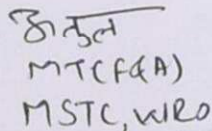 अतुल
MTC(F&A)
MSTC, WRO